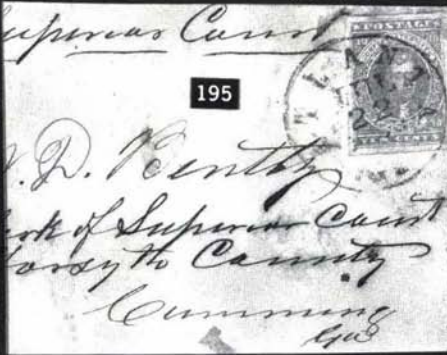 Superior Court
195
POSTAGE
D. Bently
Clerk of Superior Court
Forsyth County
Cumming
Ga